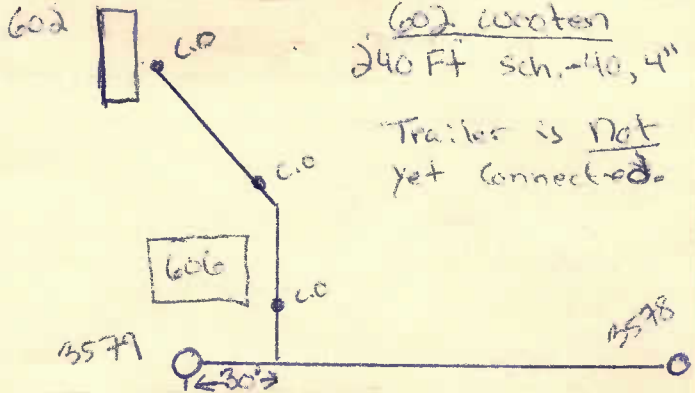 602
602 Wooten
240 Ft sch.-40, 4"
Trailer is Not
yet connected.
C.O
C.O
C.O
606
3579
←30'→
3578